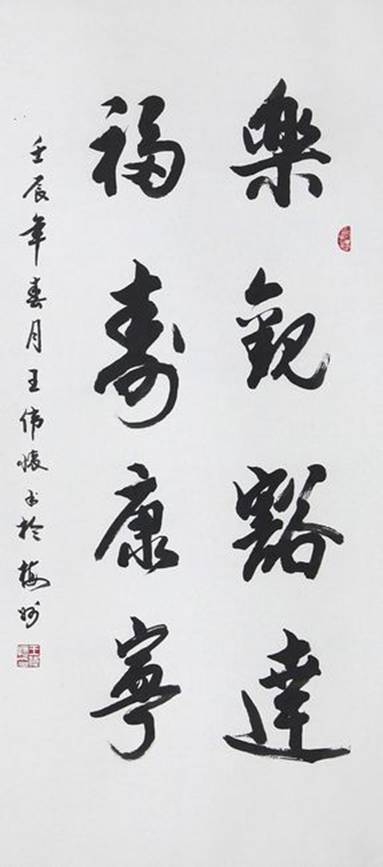 樂觀豁達
福壽康寧
壬辰年春月王伟怀书於梅州